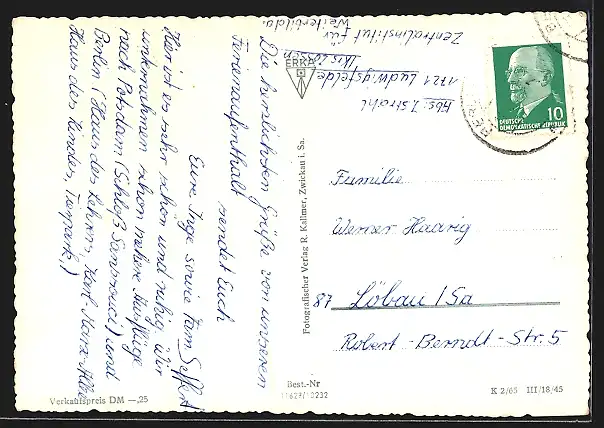 Die herzlichsten Grüße von unserem
Ferienaufenthalt sendet Euch
Eure Inge sowie Fam. Seffert
Hier ist es sehr schön und ruhig. Wir
unternahmen schon mehrere Ausflüge
nach Potsdam (Schloß Sanssouci) und
Berlin (Haus des Lehrers, Karl-Marx-Allee
Haus des Kindes, Tierpark.)
Abs. I. Strahl
1721 Ludwigsfelde
Zentralinstitut für
Weiterbildg.
ERKA
DEUTSCHE
DEMOKRATISCHE REPUBLIK
10
Familie
Werner Haarig
87 Löbau/Sa
Robert-Berndt-Str. 5
Fotografischer Verlag R. Kallmer, Zwickau i. Sa.
Verkaufspreis DM —,25
Best.-Nr
K 2/65 III/18/45